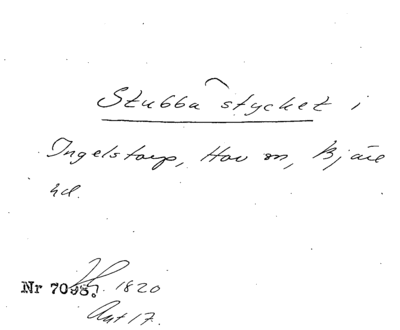 Stubba stycket i
Ingelstorp, Hov sn, Bjäre
hd.
Nr 7098. 1820
Akt 17.